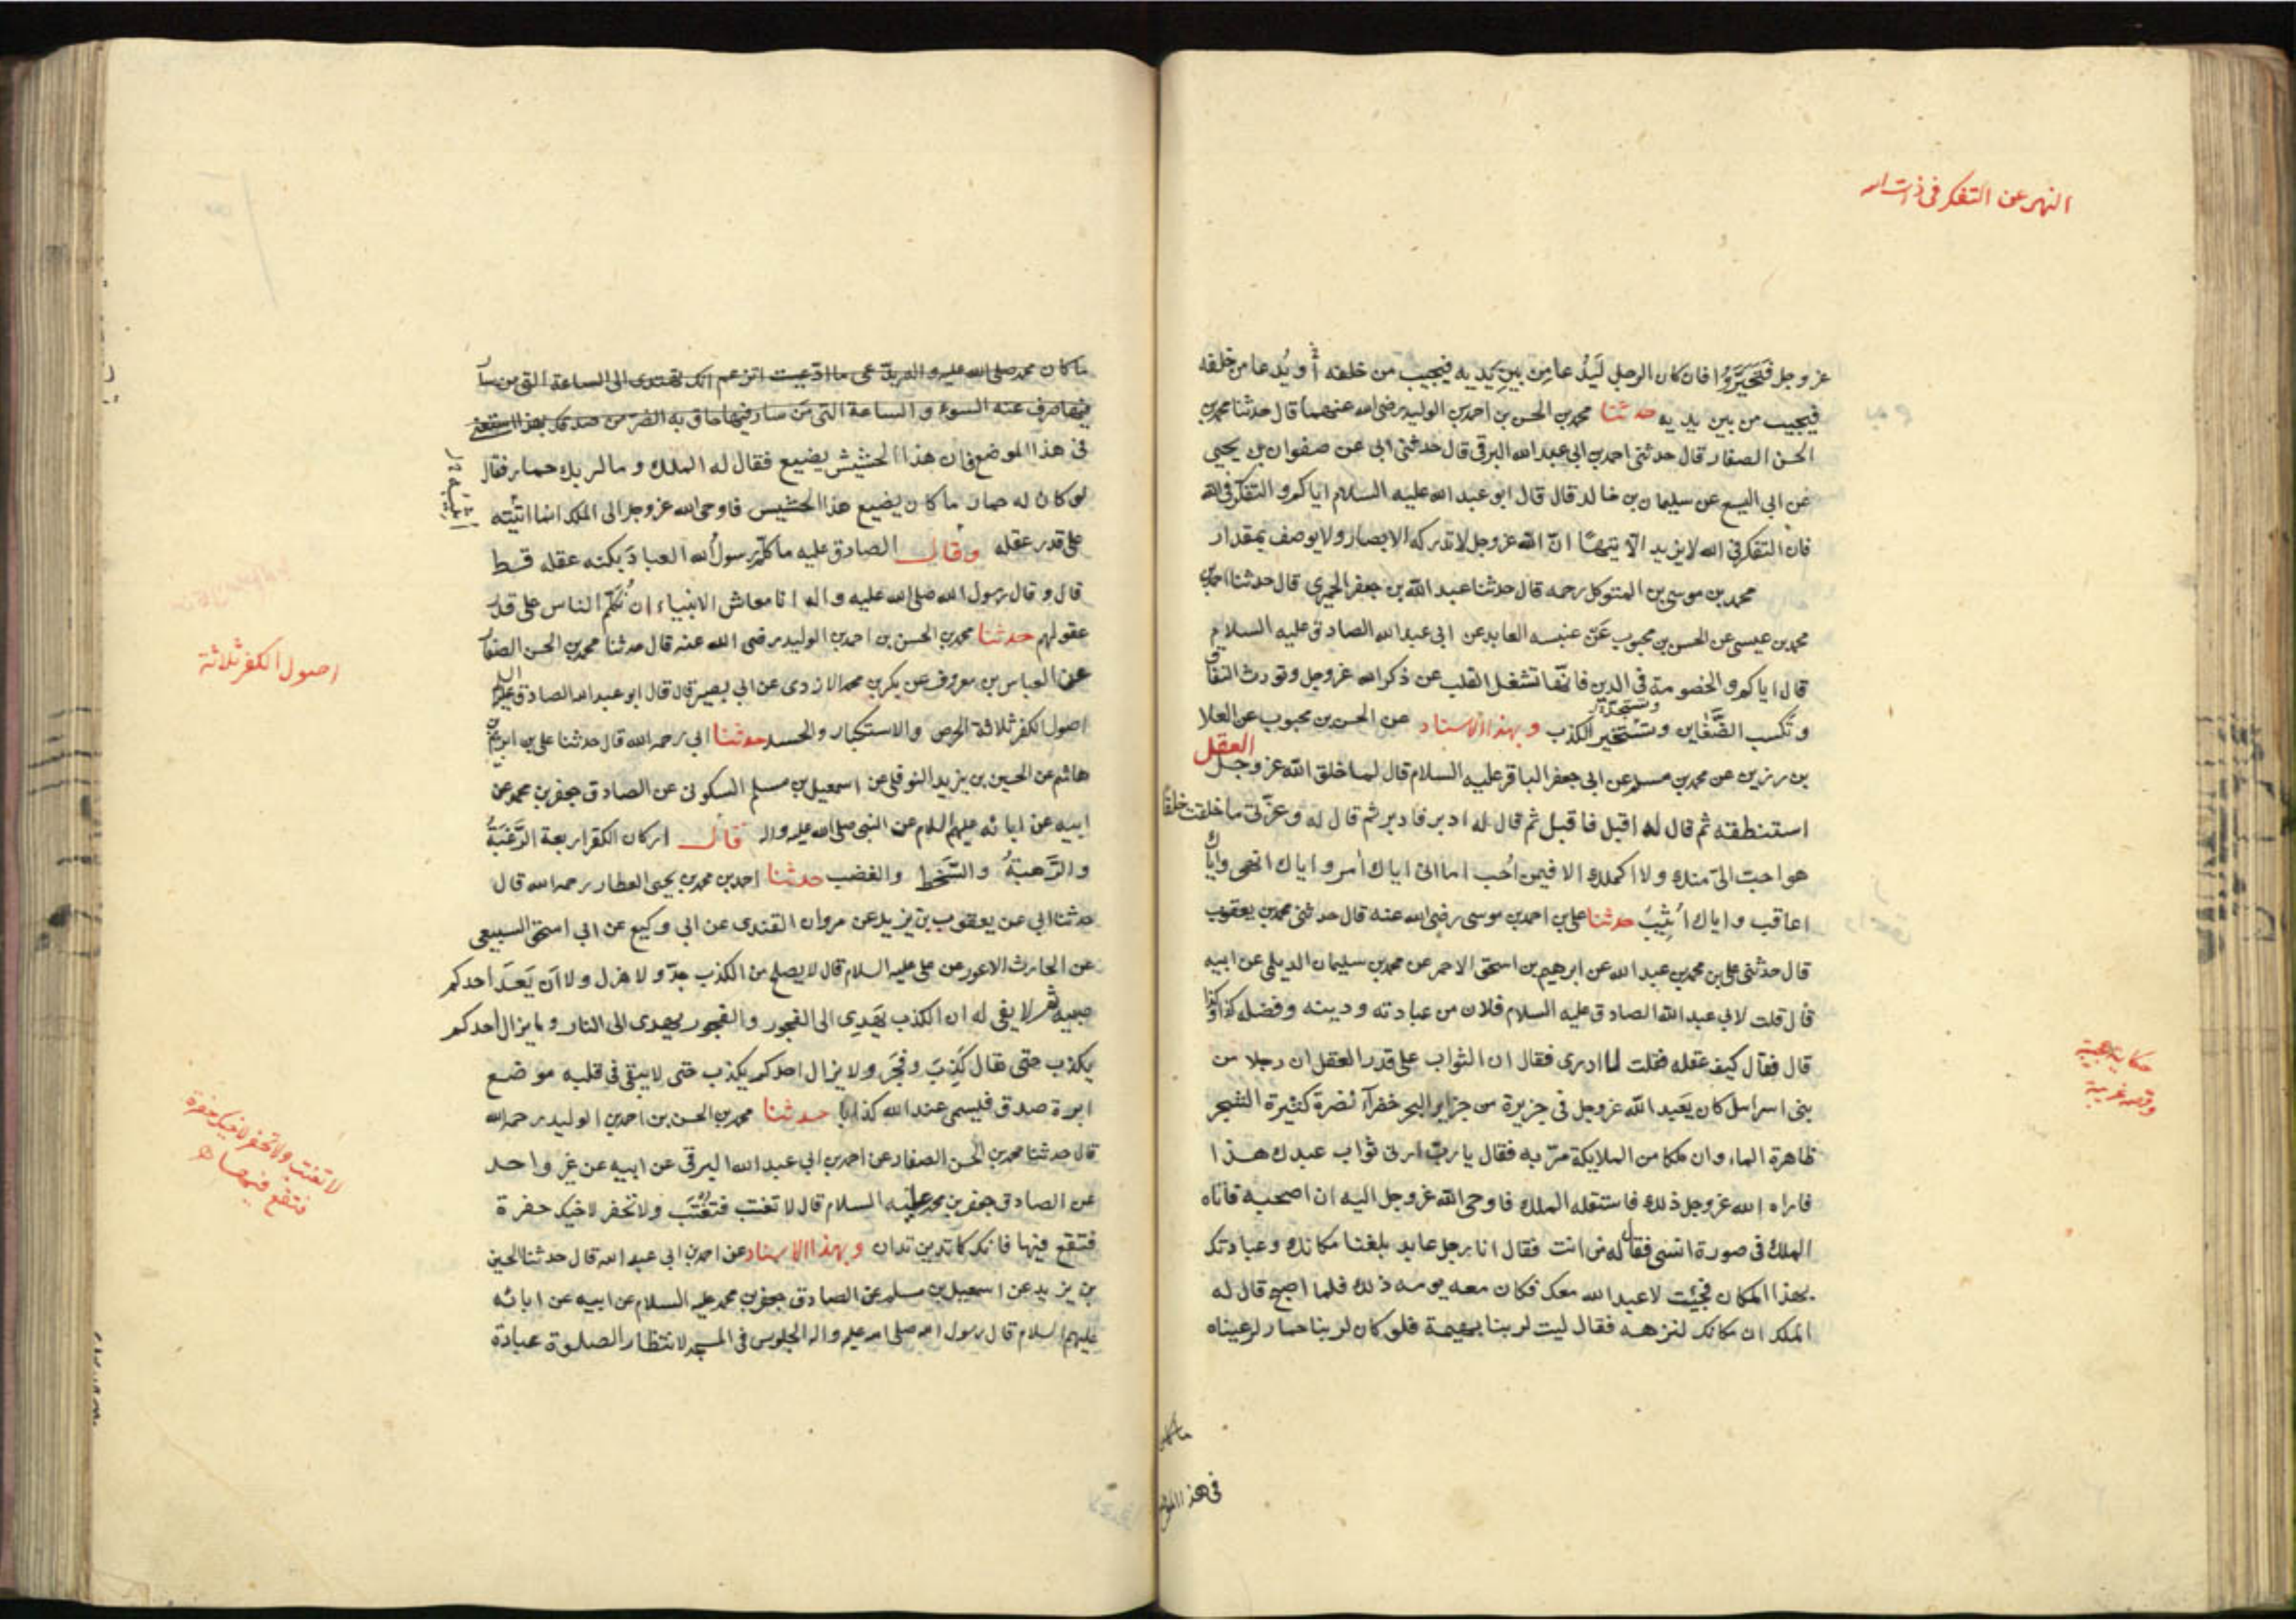 النهى عن التفكر فى ذات الله
عز وجل فتحيروا فان كان الرجل ليدعا من بين يديه فيجيب من خلفه أو يدعا من خلفه
فيجيب من بين يديه حدثنا محمد بن الحسن بن احمد بن الوليد رضى الله عنهما قال حدثنا محمد بن
الحسن الصفار قال حدثنى احمد بن ابى عبد الله البرقى قال حدثنى ابى عن صفوان بن يحيى
عن ابى اليسع عن سليمان بن خالد قال قال ابو عبد الله عليه السلام اياكم و التفكر فى الله
فان التفكر فى الله لا يزيد الا تيها ان الله عز وجل لا تدركه الابصار ولا يوصف بمقدار
محمد بن موسى بن المتوكل رحمه قال حدثنا عبد الله بن جعفر الحميرى قال حدثنا احمد بن
محمد بن عيسى عن الحسن بن محبوب عن عنبسه العابد عن ابى عبد الله الصادق عليه السلام
قال اياكم و الخصومة فى الدين فانها تشغل القلب عن ذكر الله عز وجل وتورث النفاق
و تكسب الضغاين وتستجير الكذب و بهذا الاسناد عن الحسن بن محبوب عن العلا
بن رزين عن محمد بن مسلم عن ابى جعفر الباقر عليه السلام قال لما خلق الله عز وجل العقل
استنطقه ثم قال له اقبل فاقبل ثم قال له ادبر فادبر ثم قال له وعزتى ما خلقت خلقا
هو احب الى منك ولا اكملك الا فيمن احب اما انى اياك أمر و اياك انهى واياك
اعاقب و اياك اثيب حدثنا على بن احمد بن موسى رضى الله عنه قال حدثنى محمد بن يعقوب
قال حدثنى على بن محمد بن عبد الله عن ابرهيم بن اسحق الاحمر عن محمد بن سليمان الديلمى عن ابيه
قال قلت لابى عبد الله الصادق عليه السلام فلان من عبادته و دينه و فضله كذا و كذا
قال فقال كيف عقله فقلت لا ادرى فقال ان الثواب على قدر العقل ان رجلا من
بنى اسراىل كان يعبد الله عز وجل فى جزيرة من جزاير البحر خضرآء نضرة كثيرة الشجر
ظاهرة الماء و ان ملكا من الملايكة مر به فقال يا رب ارنى ثواب عبدك هذا
فاراه الله عز وجل ذلك فاستقله الملك فاوحى الله عز وجل اليه ان اصحبه فاتاه
الملك فى صورة انسى فقال له من انت فقال انا رجل عابد بلغنا مكانك وعبادتك
بهذا المكان فجئت لاعبد الله معك فكان معه يومه ذلك فلما اصبح قال له
الملك ان مكانك لنزهه فقال ليت لربنا بهيمة فلو كان لربنا حمار لرعيناه
حكاية عجيبة
وقصه غريبة
فى هذا الموضع
ما كان محمد صلى الله عليه و اله
فى هذا الموضع فان هذا الحشيش يضيع فقال له الملك و ما لربك حمار فقال
لو كان له حمار ما كان يضيع هذا الحشيش فاوحى الله عز وجل الى الملك انما اثيبه
على قدر عقله وقال الصادق عليه ما كلم رسول الله العباد بكنه عقله قط
قال و قال رسول الله صلى الله عليه واله انا معاشر الانبياء ان نكلم الناس على قدر
عقولهم حدثنا محمد بن الحسن بن احمد بن الوليد رضى الله عنه قال حدثنا محمد بن الحسن الصفار
عن العباس بن معروف عن بكر بن محمد الازدى عن ابى بصير قال قال ابو عبد الله الصادق عليه السلام
اصول الكفر ثلاثة الحرص والاستكبار والحسد حدثنا ابى رحمه الله قال حدثنا على بن ابرهيم بن
هاشم عن الحسين بن يزيد النوفلى عن اسمعيل بن مسلم السكونى عن الصادق جعفر بن محمد عن
ابيه عن ابائه عليهم السلام عن النبى صلى الله عليه واله قال اركان الكفر اربعة الرغبة
والرهبة والسخط والغضب حدثنا احمد بن محمد بن يحيى العطار رحمه الله قال
حدثنا ابى عن يعقوب بن يزيد عن مروان القندى عن ابى وكيع عن ابى اسحق السبيعى
عن الحارث الاعور عن على عليه السلام قال لا يصلح من الكذب جد و لا هزل ولا ان يعد احدكم
صبيه ثم لا يفى له ان الكذب يهدى الى الفجور والفجور يهدى الى النار و ما يزال احدكم
يكذب حتى يقال كذب وفجر ولا يزال احدكم يكذب حتى لا يبقى فى قلبه موضع
ابرة صدق فيسمى عند الله كذابا حدثنا محمد بن الحسن بن احمد بن الوليد رحمه الله
قال حدثنا محمد بن الحسن الصفار عن احمد بن ابى عبد الله البرقى عن ابيه عن غير واحد
عن الصادق جعفر بن محمد عليه السلام قال لا تغتب فتغتب ولا تحفر لاخيك حفرة
فتقع فيها فانك كما تدين تدان و بهذا الاسناد عن احمد بن ابى عبد الله قال حدثنا الحسين
بن يزيد عن اسمعيل بن مسلم عن الصادق جعفر بن محمد عليه السلام عن ابيه عن ابائه
عليهم السلام قال رسول الله صلى الله عليه واله الجلوس فى المسجد لانتظار الصلوة عبادة
اصول الكفر ثلاثة
لا تغتب ولا تحفر لاخيك حفرة
فتقع فيها